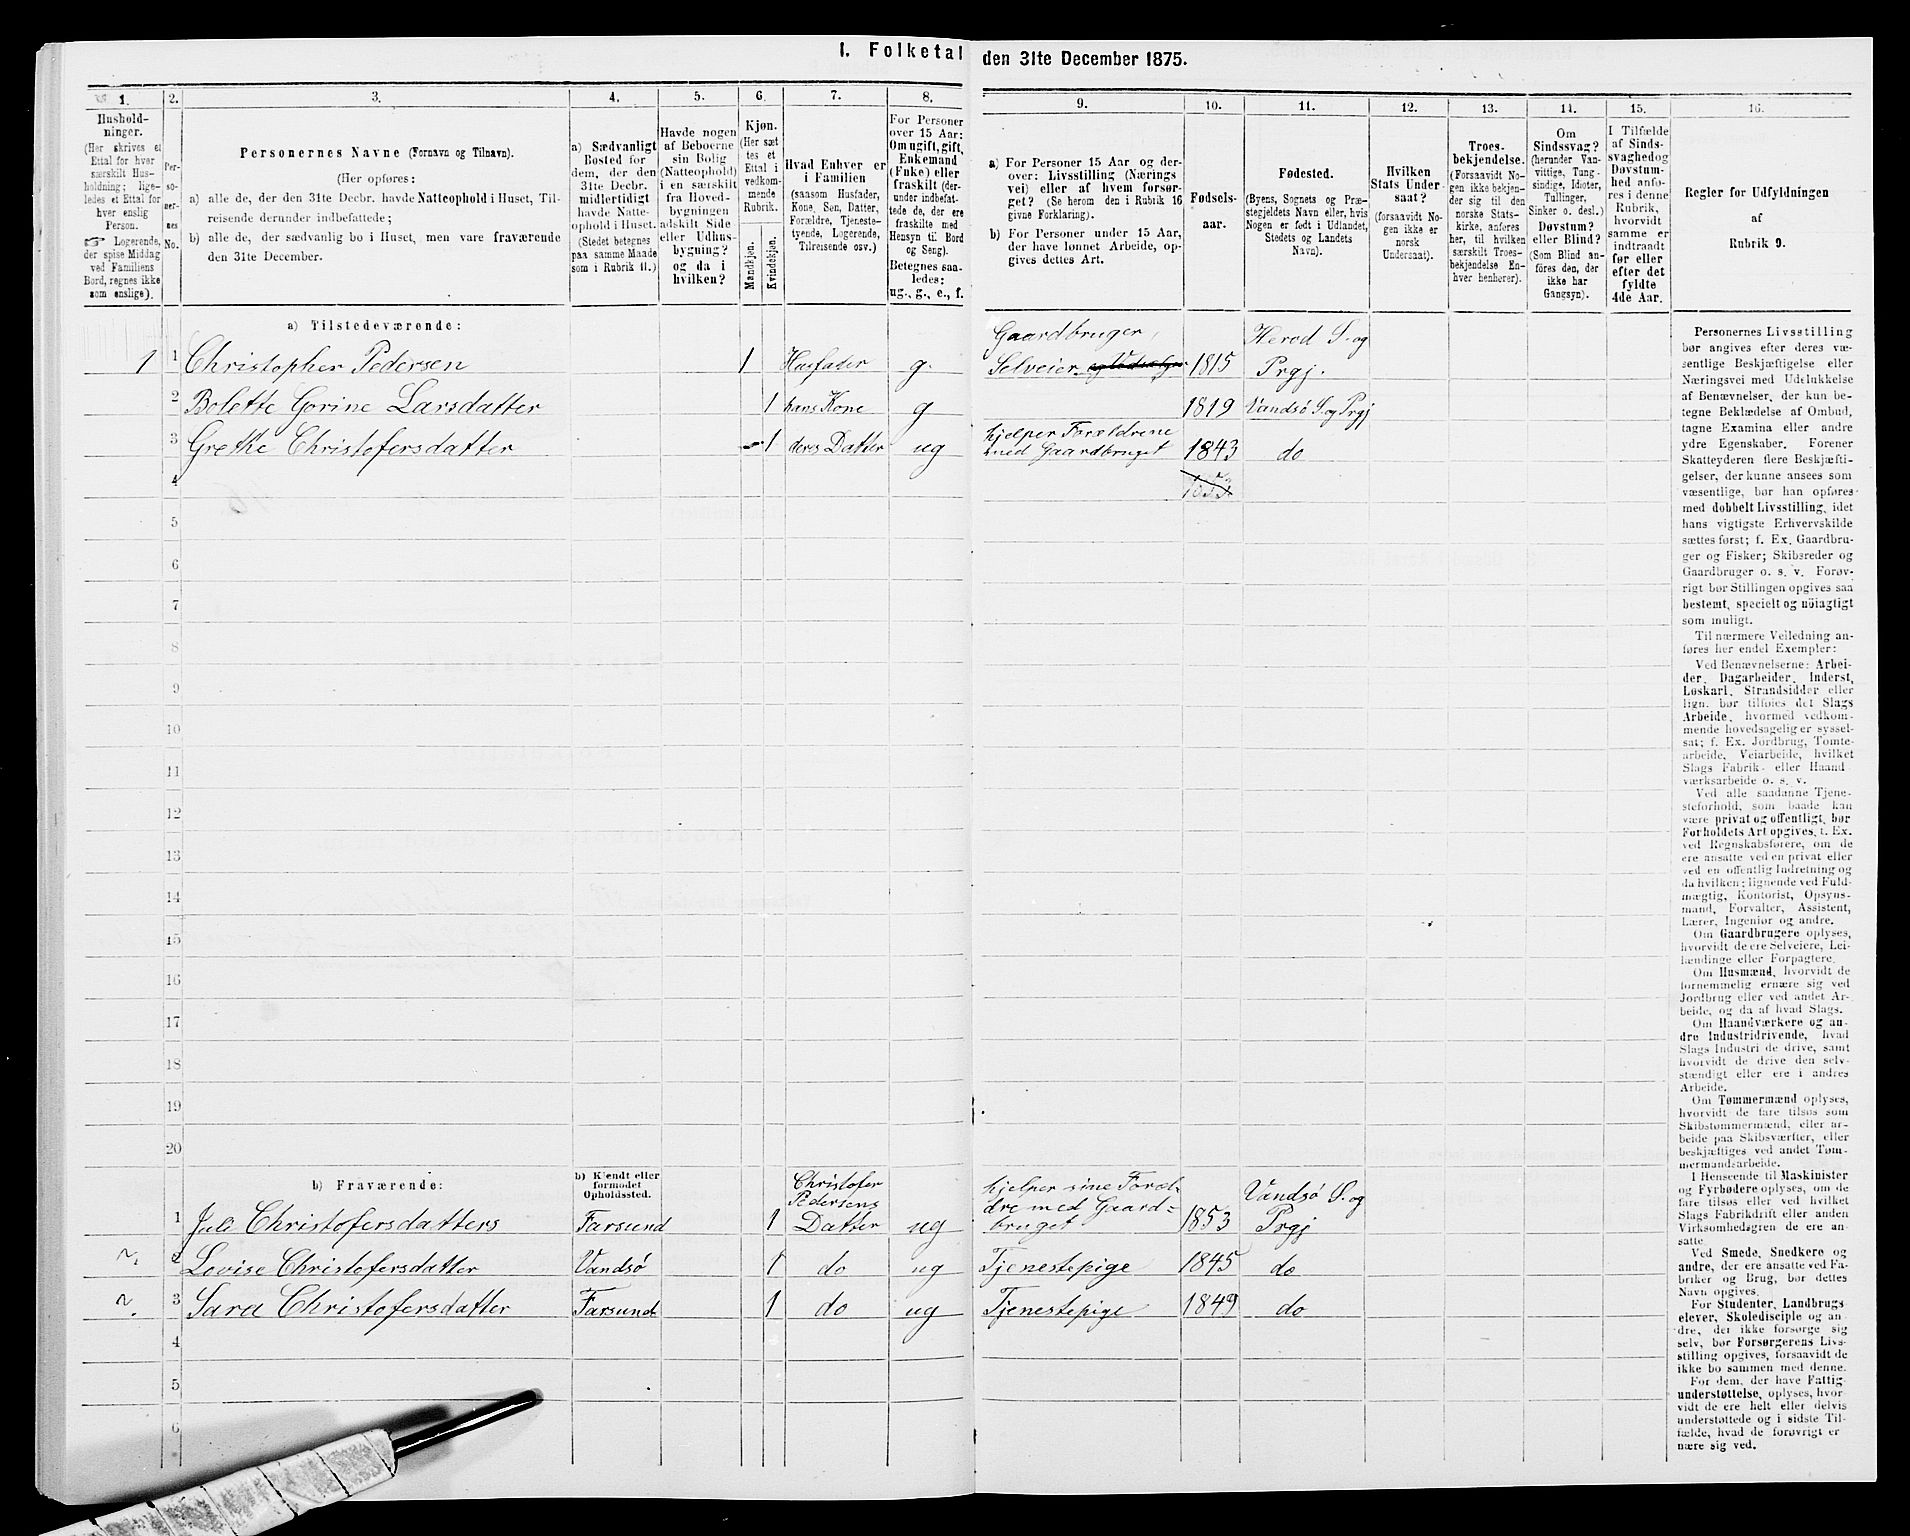 I. Folketal den 31te December 1875.
1. 2. 3. 4. 5. 6. 7. 8. 9. 10. 11. 12. 13. 14. 15. 16.
Hushold-
ninger.
(Her skrives et
Ettal for hver
særskilt Hus-
holdning; lige-
ledes et Ettal for
hver enslig
Person.
☞ Logerende,
der spise Middag
ved Familiens
Bord, regnes ikke
som enslige).
Per-
so-
ner-
nes
No.
Personernes Navne (Fornavn og Tilnavn).
(Her opføres:
a) alle de, der den 31te Decbr. havde Natteophold i Huset, Til-
reisende derunder indbefattede;
b) alle de, der sædvanlig bo i Huset, men vare fraværende
den 31te December.
a) Sædvanligt
Bosted for
dem, der den
31te Decbr.
midlertidigt
havde Natte-
ophold i Huset.
(Stedet betegnes
paa samme Maade
som i Rubrik 11.)
Havde nogen
af Beboerne
sin Bolig
(Natteophold)
i en særskilt
fra Hoved-
bygningen
adskilt Side-
eller Udhus-
bygning?
og da i
hvilken?
Kjøn.
(Her sæt
tes et
Ettal i
vedkom-
mende
Rubrik.
Mandkjøn.
Kvindekjøn.
Hvad Enhver er
i Familien
(saasom Husfader,
Kone, Søn, Datter,
Forældre, Tjeneste-
tyende, Logerende,
Tilreisende osv.)
For Personer
over 15 Aar:
Om ugift, gift,
Enkemand
(Enke) eller
fraskilt (der-
under indbefat-
tede de, der ere
fraskilte med
Hensyn til Bord
og Seng).
Betegnes saa-
ledes:
ug., g., e., f.
a) For Personer 15 Aar og der-
over: Livsstilling (Nærings
vei) eller af hvem forsør-
get? (Se herom den i Rubrik 16
givne Forklaring).
b) For Personer under 15 Aar,
der have lønnet Arbeide, op-
gives dettes Art.
Fødsels-
aar.
Fødested.
(Byens, Sognets og Præ-
stegjeldets Navn eller, hvis
Nogen er født i Udlandet,
Stedets og Landets
Navn).
Hvilken
Stats Under-
saat?
(forsaavidt No-
gen ikke er
norsk
Undersaat).
Troes-
bekjendelse.
(Forsaavidt No-
gen ikke bekjen-
der sig til den
norske Stats-
kirke, anføres
her, til hvilken
særskilt Troes-
bekjendelse En-
hver henhører).
Om
Sindssvag?
(herunder Van-
vittige, Tung-
sindige, Idioter,
Tullinger,
Sinker o. desl.)
Døvstum?
eller Blind?
(Som Blind an-
føres den, der
ikke har
Gangsyn).
I Tilfælde
af Sinds-
svaghed og
Døvstum-
hed anfø-
res i denne
Rubrik,
hvorvidt
samme er
indtraadt
før eller
efter det
fyldte
4de Aar.
Regler for Udfyldningen
af
Rubrik 9.
a) Tilstedeværende:
1 1 Christopher Pedersen 1 Husfader g. Gaardbruger, Selveier 1815 Herod S. og Prgj.
2 Bolette Gorine Larsdatter 1 hans Kone g 1819 Vandsö S. og Prgj
3 Grethe Christofersdatter 1 deres Datter ug hjelper Forældrene med Gaardbruget 1843 do
4
5
6
7
8
9
10
11
12
13
14
15
16
17
18
19
20
b) Fraværende: b) Kjendt eller
formodet
Opholdssted.
1 Juli Christofersdatters Farsund 1 Christofer Pedersens Datter ug hjelper sine Foræl- dre med Gaard= bruget 1853 Vandsö S. og Prgj
2 Lovise Christofersdatter Vandsö 1 do ug Tjenestepige 1845 do
3 Sara Christofersdatter Farsund 1 do ug Tjenestepige 1849 do
4
5
6
Personernes Livsstilling
bør angives efter deres væ-
sentlige Beskjæftigelse eller
Næringsvei med Udelukkelse
af Benævnelser, der kun be-
tegne Beklædelse af Ombud,
tagne Examina eller andre
ydre Egenskaber. Forener
Skatteyderen flere Beskjæfti-
gelser, der kunne ansees som
væsentlige, bør han opføres
med dobbelt Livsstilling, idet
hans vigtigste Erhvervskilde
sættes først; f. Ex. Gaardbru-
ger og Fisker; Skibsreder og
Gaardbruger o. s. v. Forøv-
rigt bør Stillingen opgives saa
bestemt, specielt og nöiagtigt
som muligt.
Til nærmere Veiledning an-
føres her endel Exempler:
Ved Benævnelserne: Arbei-
der, Dagarbeider, Inderst,
Løskarl, Strandsidder eller
lign. bør tilføies det Slags
Arbeide, hvormed vedkom-
mende hovedsagelig er syssel-
sat; f. Ex. Jordbrug, Tomte-
arbeide, Veiarbeide, hvilket
Slags Fabrik- eller Haand
værksarbeide o. s. v.
Ved alle saadanne Tjene-
steforhold, som baade kan
være privat og offentligt, bør
Forholdets Art opgives, t. Ex.
ved Regnskabsførere, om de
ere ansatte ved en privat eller
ved en offentlig Indretning og
da hvilken; lignende ved Fuld-
mægtig, Kontorist, Opsyns-
mand, Forvalter, Assistent,
Lærer, Ingeniør og andre.
Om Gaardbrugere oplyses,
hvorvidt de ere Selveiere, Lei-
lændinge eller Forpagtere.
Om Husmænd, hvorvidt de
fornemmelig ernære sig ved
Jordbrug eller ved andet Ar-
beide, og da af hvad Slags.
Om Haandværkere og an-
dre Industridrivende, hvad
Slags Industri de drive, samt
hvorvidt de drive den selv-
stændigt eller ere i andres
Arbeide.
Om Tømmermænd oplyses,
hvorvidt de fare tilsøs som
Skibstømmermænd, eller ar-
beide paa Skibsværfter, eller
beskjæftiges ved andet Tøm-
mermandsarbeide.
I Henseende til Maskinister
og Fyrbødere oplyses, om de
fare tilsøs eller ved hvilket
Slags Fabrikdrift eller anden
Virksomhedsgren de ere an-
satte.
Ved Smede, Snedkere og
andre, der ere ansatte ved Fa-
briker og Brug, bør dettes
Navn opgives.
For Studenter, Landbrugs
elever, Skoledisciple og an-
dre, der ikke forsørge sig
selv, bør Forsørgerens Livs-
stilling opgives, forsaavidt de
ikke bo sammen med denne.
For dem, der have Fattig
understøttelse, oplyses, hvor-
vidt de ere helt eller delvis
understøttede og i sidste Til-
fælde, hvad de forøvrigt er
nære sig ved.